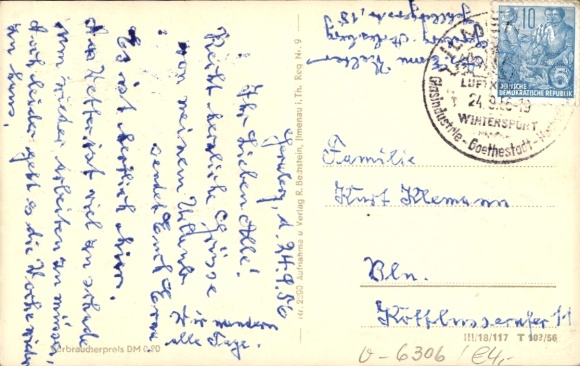 Ilmenau, d. 24.9.56
Ihr Lieben Alle!
Recht herzliche Grüsse
von meinem Urlaub
sendet Euch Erna
Es ist herrlich hier.
Das Wetter ist viel zu schade
um wieder arbeiten zu müssen,
doch leider geht es die Woche wieder
zu Haus.
Wir wandern
alle Tage.
Verbraucherpreis DM 0,20
Nr. 2290 Aufnahme u Verlag R. Bechstein, Ilmenau i. Th. Reg Nr. 9
10
DEUTSCHE
DEMOKRATISCHE REPUBLIK
LUFTK
24.9.56-19
WINTERSPORT
Glasindustrie - Goethestadt -
Familie
Kurt Klemann
Bln.
Kottbusserufer
III/18/117 T 107/56
v-6306 /€4,-